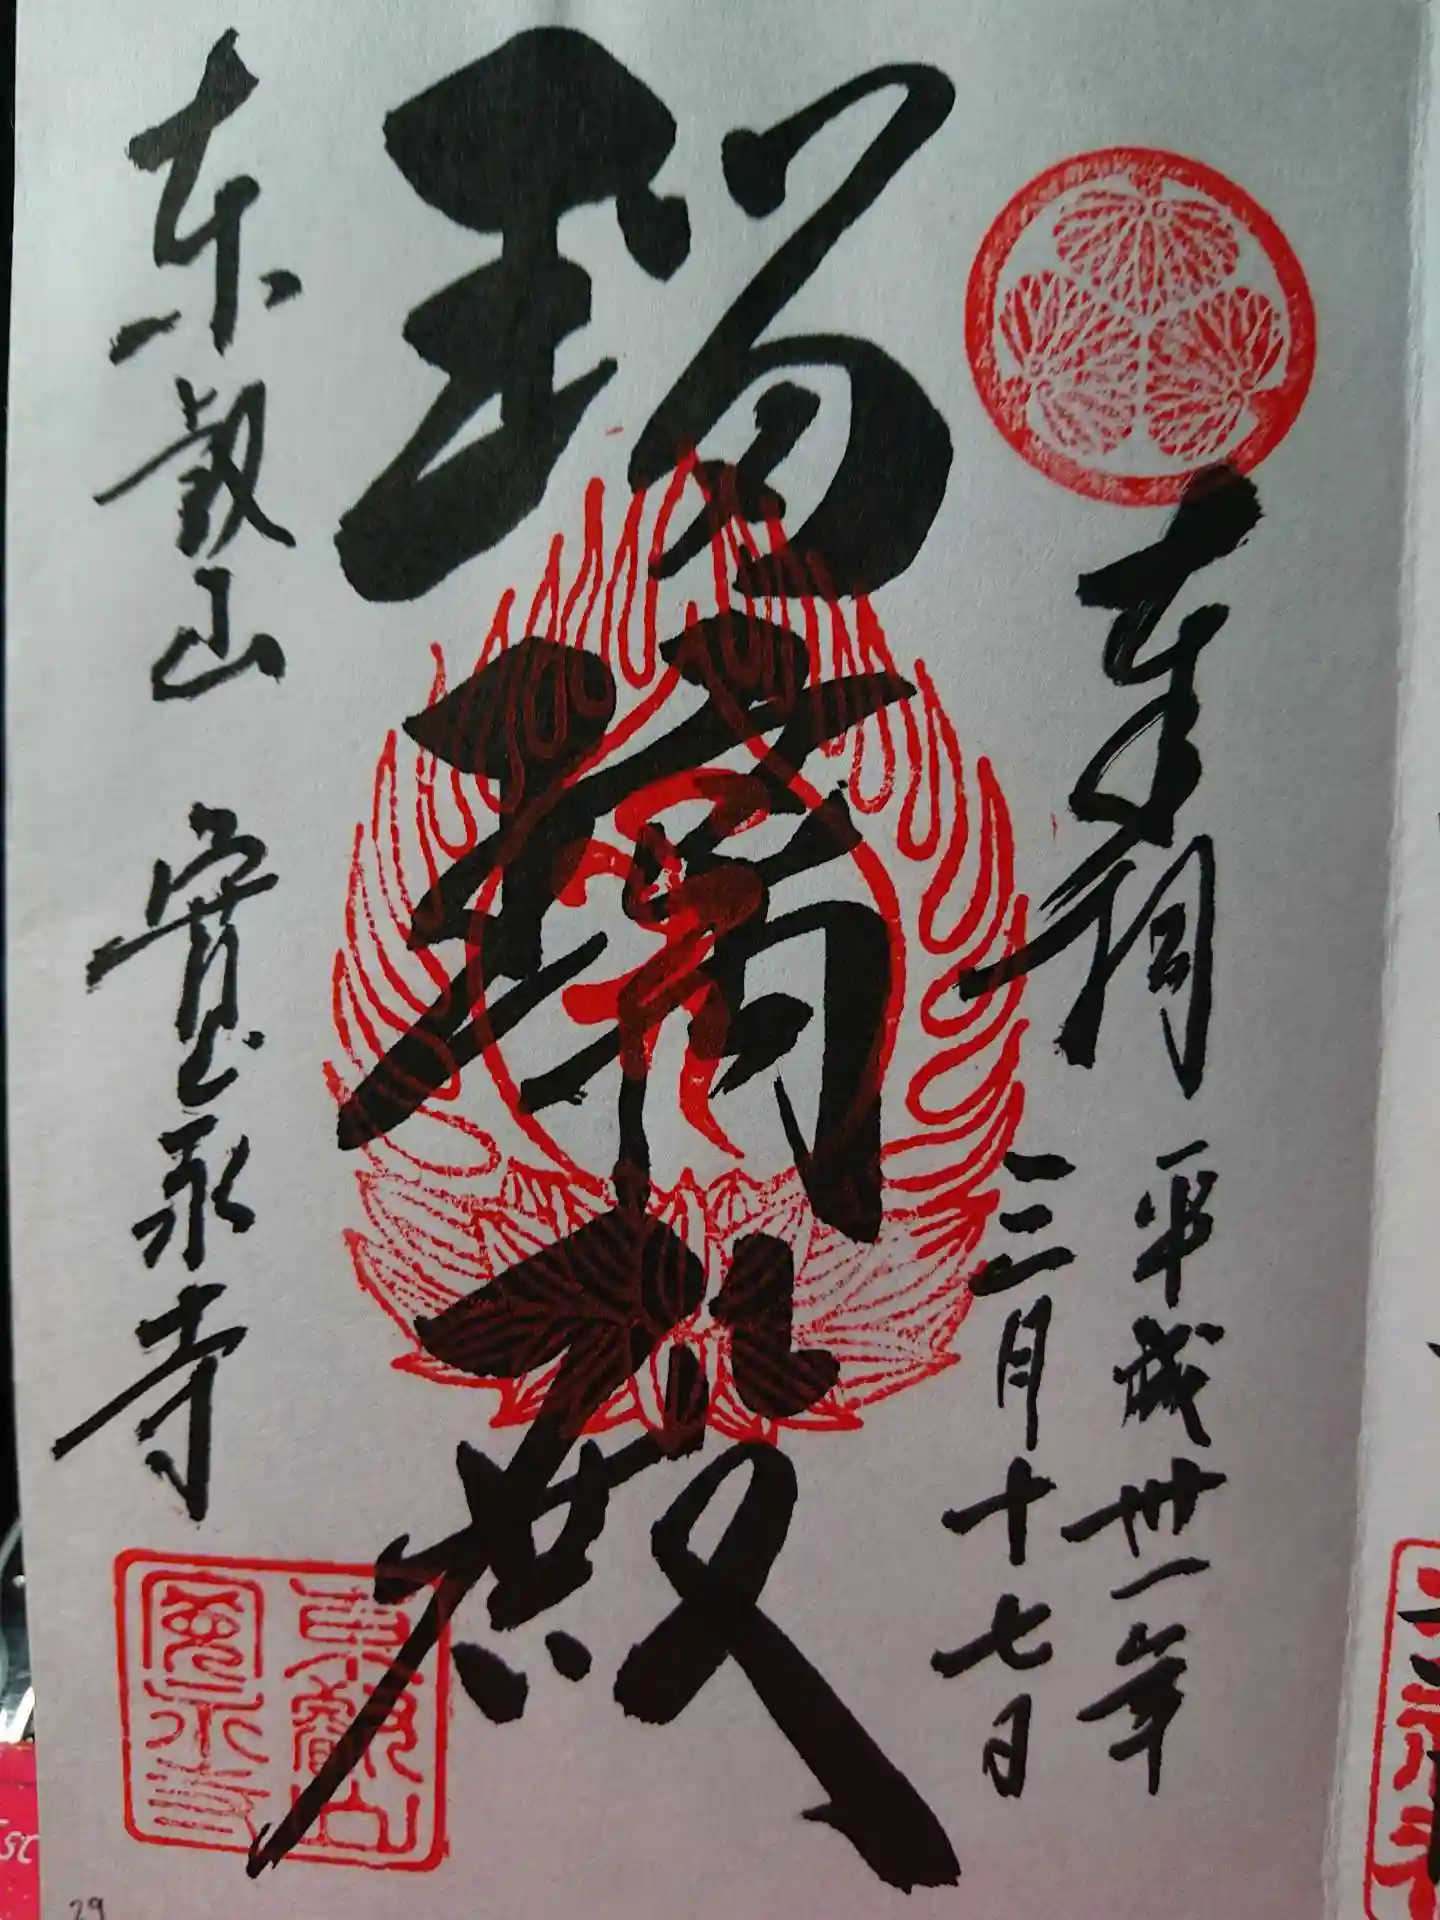 奉
平成卅一年
三月十七日
瑠璃殿
東叡山 寛永寺
東叡山
寛永寺
29